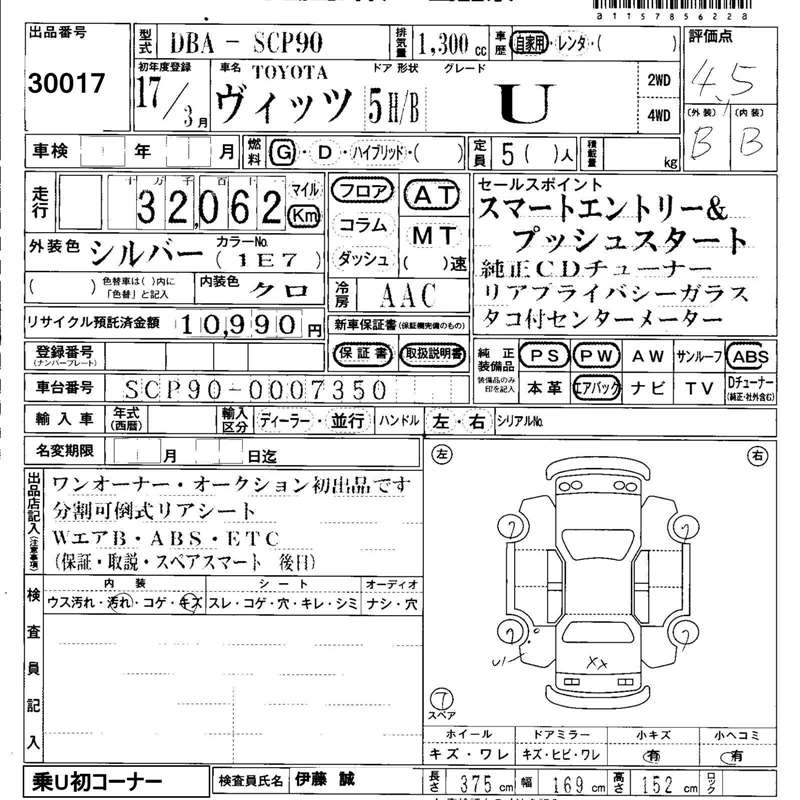 a1157856228
出品番号
30017
型式 DBA - SCP90 排気量 1,300 cc 車歴 自家用・レンタ・( )
初年度登録 17/3月 車名 TOYOTA ヴィッツ ドア 形状 5 H/B グレード U 2WD 4WD
評価点 4.5
(外装) B (内装) B
車検 年 月 燃料 G・D・ハイブリッド・( ) 定員 5 ( )人 積載量 kg
走行 十万千百十 32,062 マイル Km
外装色 シルバー カラーNo. (1E7)
( ) 色替車は( )内に「色替」と記入 内装色 クロ
リサイクル預託済金額 10,990 円
フロア コラム ダッシュ
AT MT ( )速
冷房 AAC
新車保証書(保証欄完備のもの)
保証書 取扱説明書
セールスポイント
スマートエントリー&
プッシュスタート
純正CDチューナー
リアプライバシーガラス
タコ付センターメーター
登録番号 (ナンバープレート)
車台番号 SCP90-0007350
純正装備品 装備品のみ印を記入 PS PW AW サンルーフ ABS
本革 エアバック ナビ TV Dチューナー (純正・社外含む)
輸入車 年式(西暦) 輸入区分 ディーラー・並行 ハンドル 左・右 シリアルNo.
名変期限 月 日迄
出品店記入(注意事項)
ワンオーナー・オークション初出品です
分割可倒式リアシート
WエアB・ABS・ETC
(保証・取説・スペアスマート 後日)
検査員記入
内装 シート オーディオ
ウス汚れ・汚れ・コゲ・キズ スレ・コゲ・穴・キレ・シミ ナシ・穴
左 右
7 7
7 7
U1 XX
7
スペア
ホイール ドアミラー 小キズ 小ヘコミ
キズ・ワレ キズ・ヒビ・ワレ 有 有
乗U初コーナー 検査員氏名 伊藤 誠 長さ 375 cm 幅 169 cm 高さ 152 cm ロック